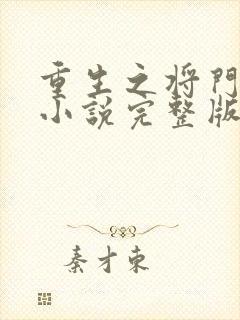 重生之将門
小説完整版
秦才東